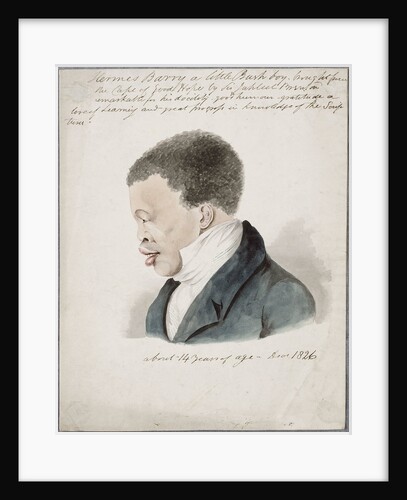 Hermes Barry a little Bush boy. brought from
the Cape of Good Hope by Sir Jahleel Brenton
remarkable for his docility good humour gratitude a
love of Learning and great progress in knowledge of the Scrip
tures
about 14 years of age - Decr 1826